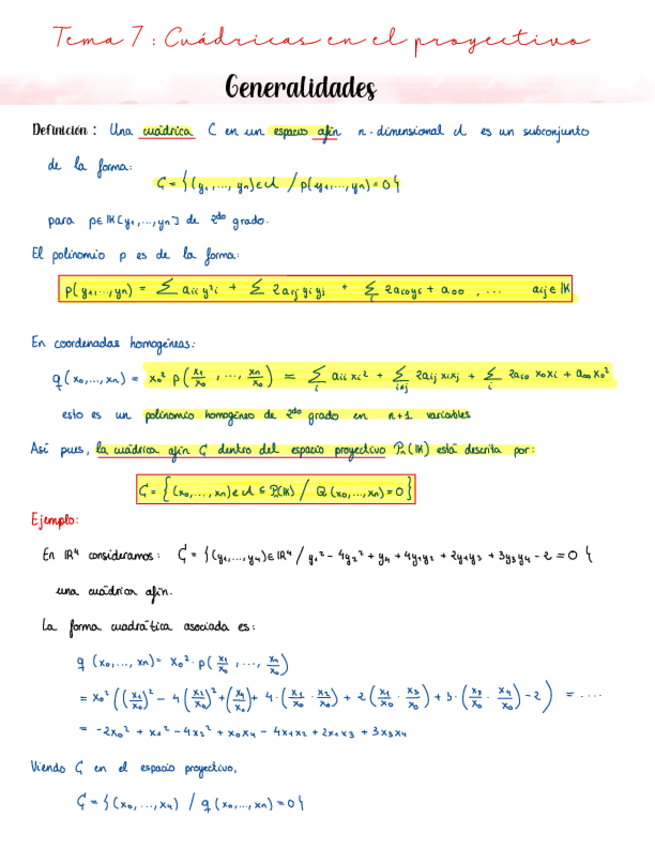 Tema 7: Cuádricas en el proyectivo
Generalidades
Definición: Una cuádrica C en un espacio afín n-dimensional A es un subconjunto
de la forma:
C = {(y₁,..., yn) ∈ A / p(y₁,..., yn) = 0}
para p∈ IK[y₁,...,yn] de 2do grado.
El polinomio p es de la forma:
p(y₁,...,yn) = Σ aii y²i + Σ 2aij yi yj + Σ 2aio yi + a₀₀ , ... aij ∈ IK
En coordenadas homogéneas:
q(x₀,...,xn) = x₀² p(x₁/x₀ , ..., xn/x₀) = Σi aii xi² + Σi≠j 2aij xixj + Σi 2aio x₀xi + a₀₀ x₀²
esto es un polinomio homogéneo de 2do grado en n+1 variables
Así pues, la cuádrica afín C dentro del espacio proyectivo Pn(IK) está descrita por:
C = {(x₀,...,xn) ∈ A ⊆ Pn(IK) / Q(x₀,...,xn) = 0}
Ejemplo:
En IR⁴ consideramos: C = {(y₁,...,y₄) ∈ IR⁴ / y₁² - 4y₂² + y₄ + 4y₁y₂ + 2y₁y₃ + 3y₃y₄ - 2 = 0}
una cuádrica afín.
La forma cuadrática asociada es:
q (x₀,..., xn) = x₀² · p(x₁/x₀ , ..., xn/x₀)
= x₀² ((x₁/x₀)² - 4 (x₂/x₀)² + (x₄/x₀) + 4·(x₁/x₀ · x₂/x₀) + 2(x₁/x₀ · x₃/x₀) + 3·(x₃/x₀ · x₄/x₀) - 2) = ....
= -2x₀² + x₁² - 4x₂² + x₀x₄ - 4x₁x₂ + 2x₁x₃ + 3x₃x₄
Viendo C en el espacio proyectivo,
C = {(x₀,...,x₄) / q(x₀,...,xn) = 0}